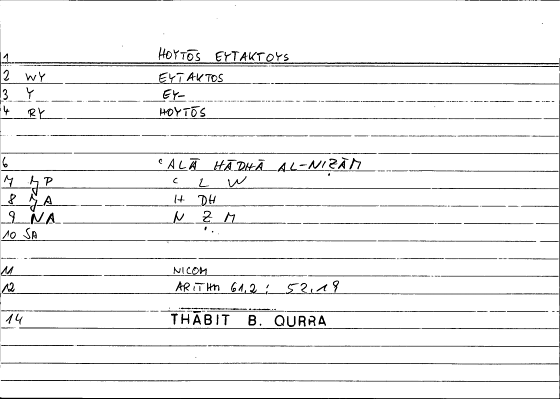 1 HOYTŌS EYTAKTOYS
2 WY EYTAKTOS
3 Y EY-
4 RY HOYTŌS
6 ʿALĀ HĀDHĀ AL-NIẒĀM
7 JP ʿ L W
8 JA H DH
9 NA N Ẓ M
10 SA
11 NICOM
12 ARITHM 61.2 : 52.19
14 THĀBIT B. QURRA